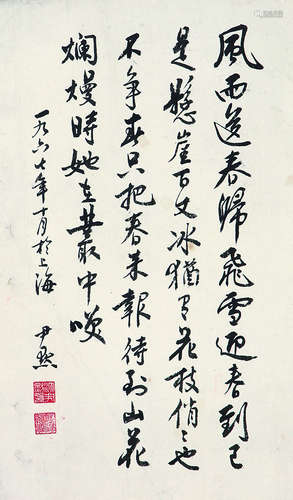 風雨送春歸飛雪迎春到已
是懸崖百丈冰猶有花枝俏俏也
不争春只把春来報待到山花
爛熳時她在叢中唉
一九六七年十月於上海
尹默